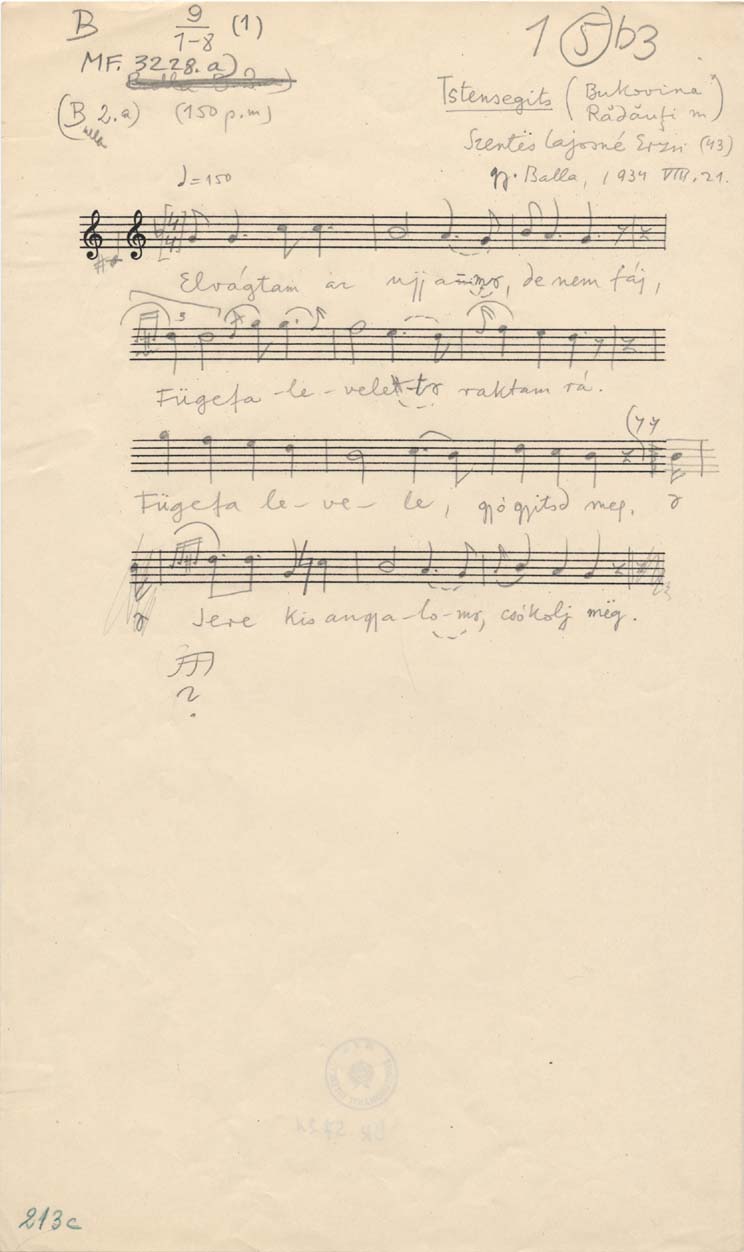 B 9/1-8 (1)
1 (5) b3
MF. 3228. a)
(Balla 2.a) (150 p.m)
Istensegits (Bukovina
Rădăuți m)
Szentës Lajosné Erzsi (43)
gy. Balla, 1934 VIII. 21.
♩=150
Elvágtam az ujja de nem fáj,
Fügefa-le-vele raktam rá.
Fügefa le-ve-le, gyógyitsd meg,
Jere kis angya-lo-mɤ, csókolj mëg.
?
213c